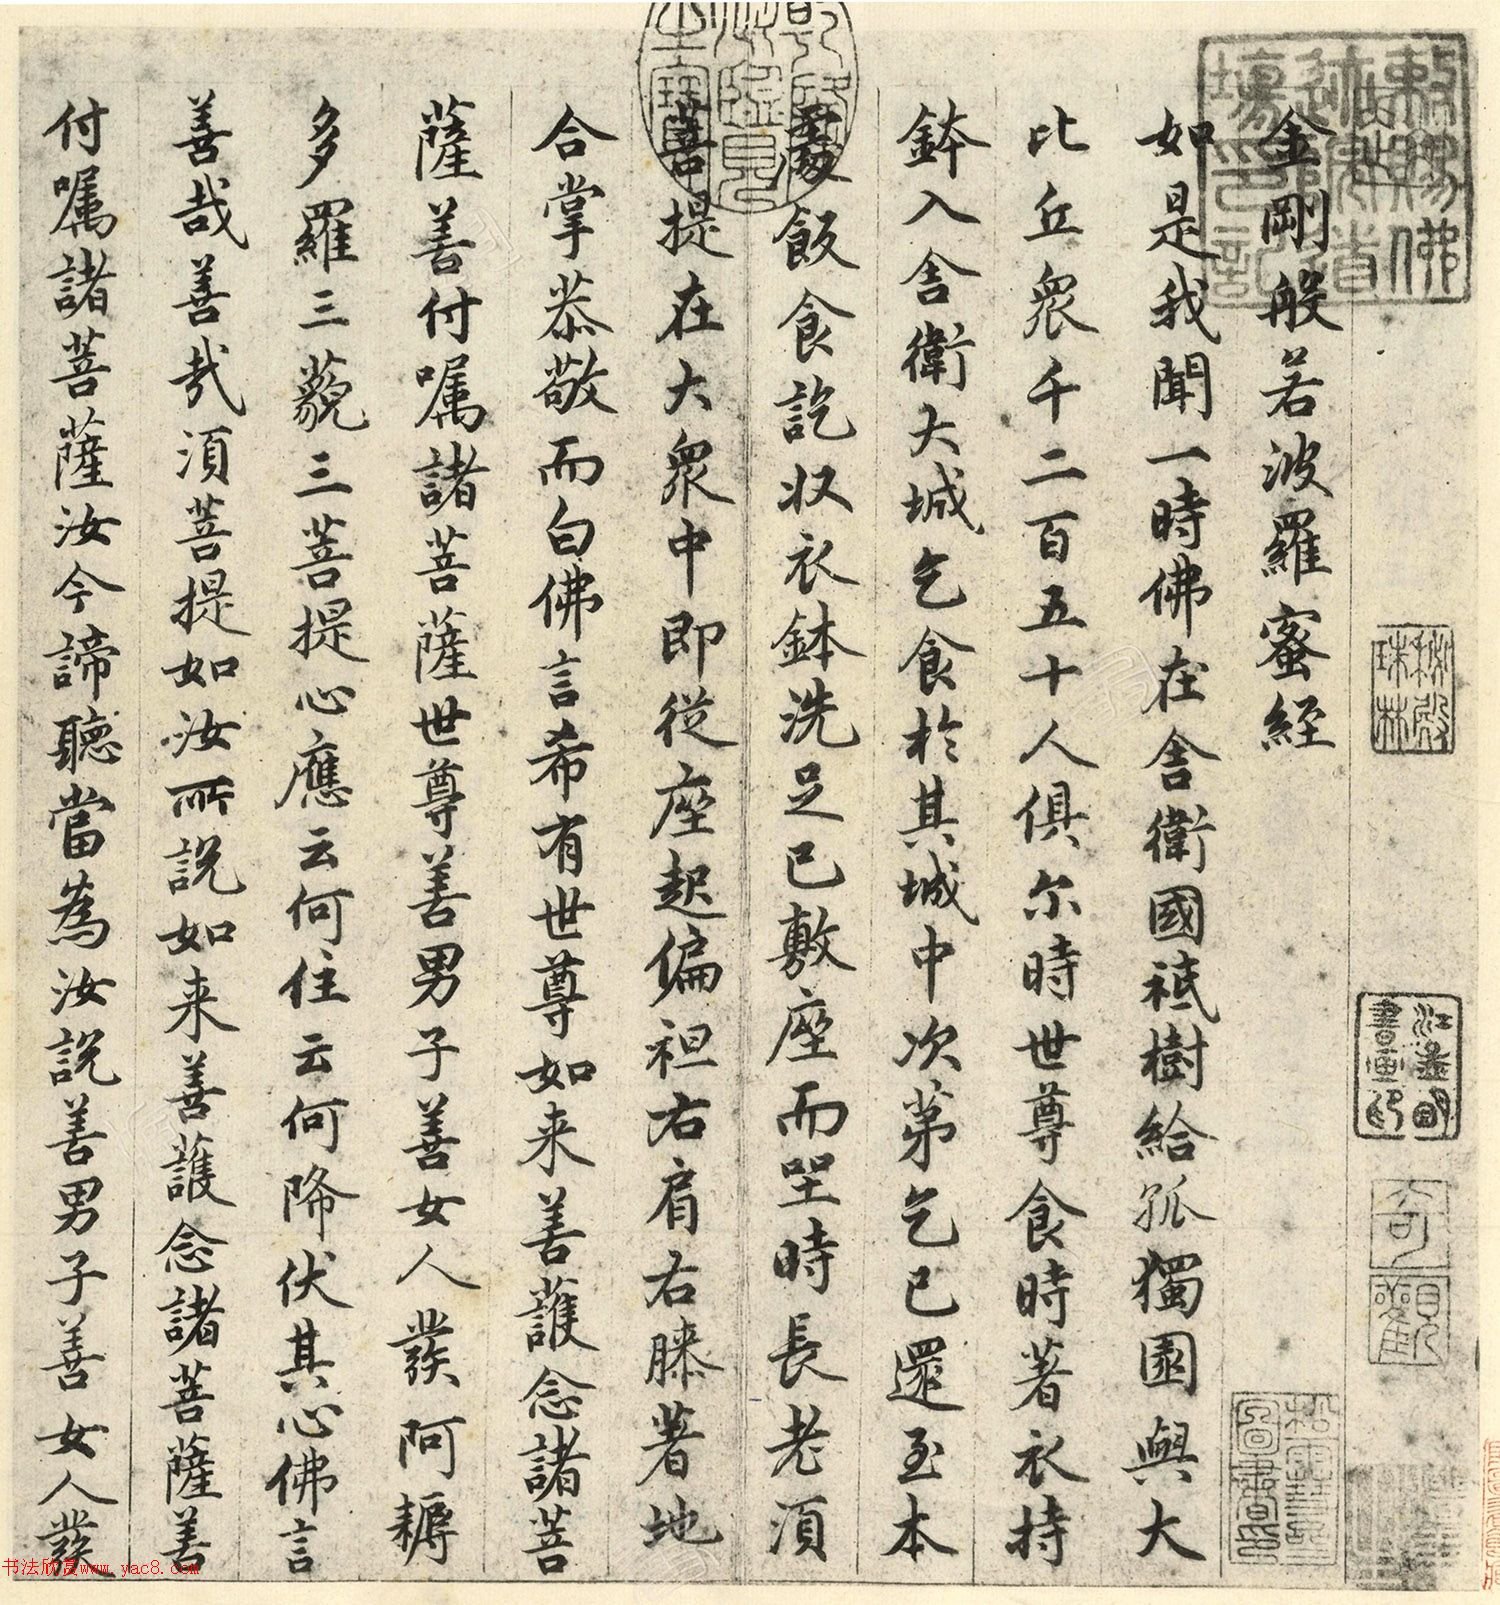 金剛般若波羅蜜經
如是我聞一時佛在舍衛國祇樹給孤獨園與大
比丘衆千二百五十人俱尔時世尊食時著衣持
鉢入舍衛大城乞食於其城中次第乞已還至本
處飯食訖収衣鉢洗足已敷座而坐時長老須
菩提在大衆中即從座起偏袒右肩右膝著地
合掌恭敬而白佛言希有世尊如来善護念諸菩
薩善付囑諸菩薩世尊善男子善女人發阿耨
多羅三藐三菩提心應云何住云何降伏其心佛言
善哉善哉須菩提如汝所說如来善護念諸菩薩善
付囑諸菩薩汝今諦聽當為汝說善男子善女人發
秘殿
珠林
奇觀
书法欣赏www.yac8.com